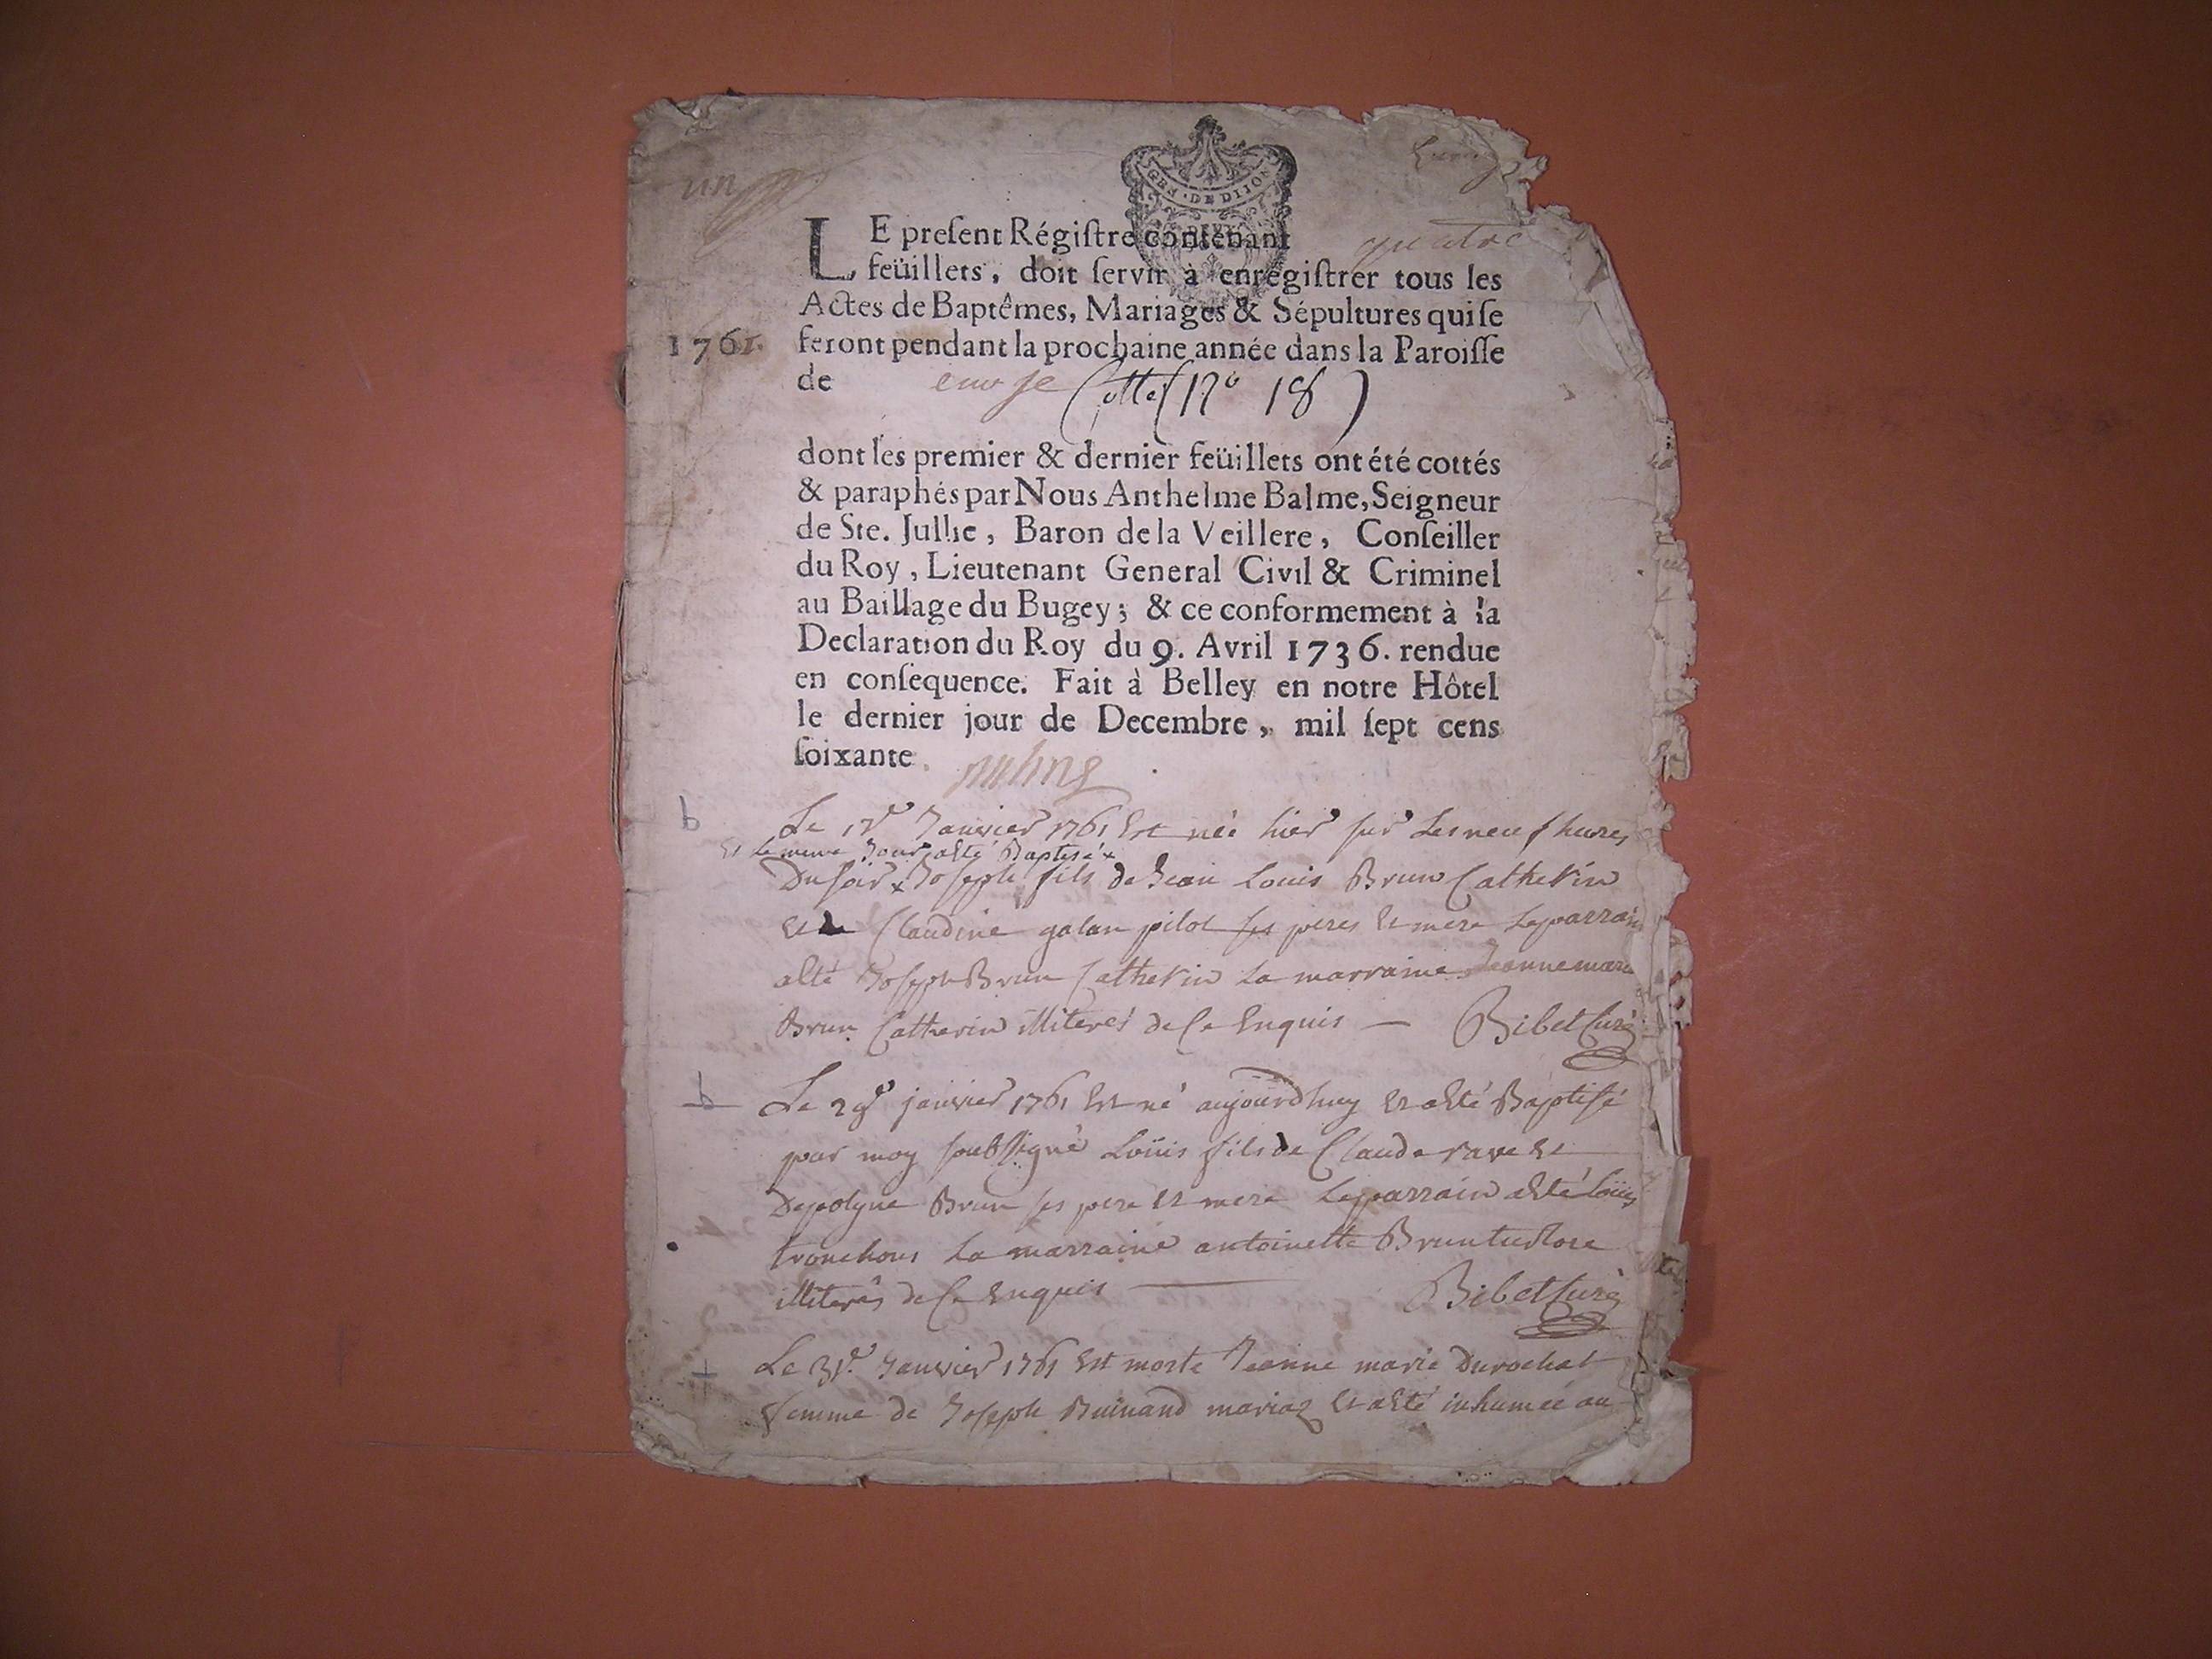 un
GEN. DE DIJON
LE preſent Régiſtre contenant quatre
feüillets, doit ſervir à enrégiſtrer tous les
Actes de Baptêmes, Mariages & Sépultures qui ſe
1761. feront pendant la prochaine année dans la Paroiſſe
de Cotte (N° 18)
dont les premier & dernier feüillets ont été cottés
& paraphés par Nous Anthelme Balme, Seigneur
de Ste. Jullie, Baron de la Veillere, Conſeiller
du Roy, Lieutenant General Civil & Criminel
au Baillage du Bugey; & ce conformement à la
Declaration du Roy du 9. Avril 1736. rendue
en conſequence. Fait à Belley en notre Hôtel
le dernier jour de Decembre, mil ſept cens
ſoixante.
b Le Janvier 1761 Est née hier sur Les neuf heures
Et Le meme Jour a Eté Baptisé x
Du soir x Joseph fils de Jean Louis Brun Catherin
Et Claudine galan pilot ses peres Et mere Le parrain
a Eté Joseph Brun Catherin La marraine Jeanne marie
Brun Catherin illiterés de Ce Enquis — Bibet Curé
b Le 29e janvier 1761 Est né aujourdhuy Et a Eté Baptisé
par moy soubsigné Loüis fils de Claude rave Et
Brun ses pere Et mere Le parrain a Eté Loüis
tronchon La marraine antoinette Brun
illiterés de Ce Enquis — Bibet Curé
+ Le 31e Janvier 1761 Est morte Jeanne marie Durochat
femme de Joseph mariaz Et a Eté inhumée au